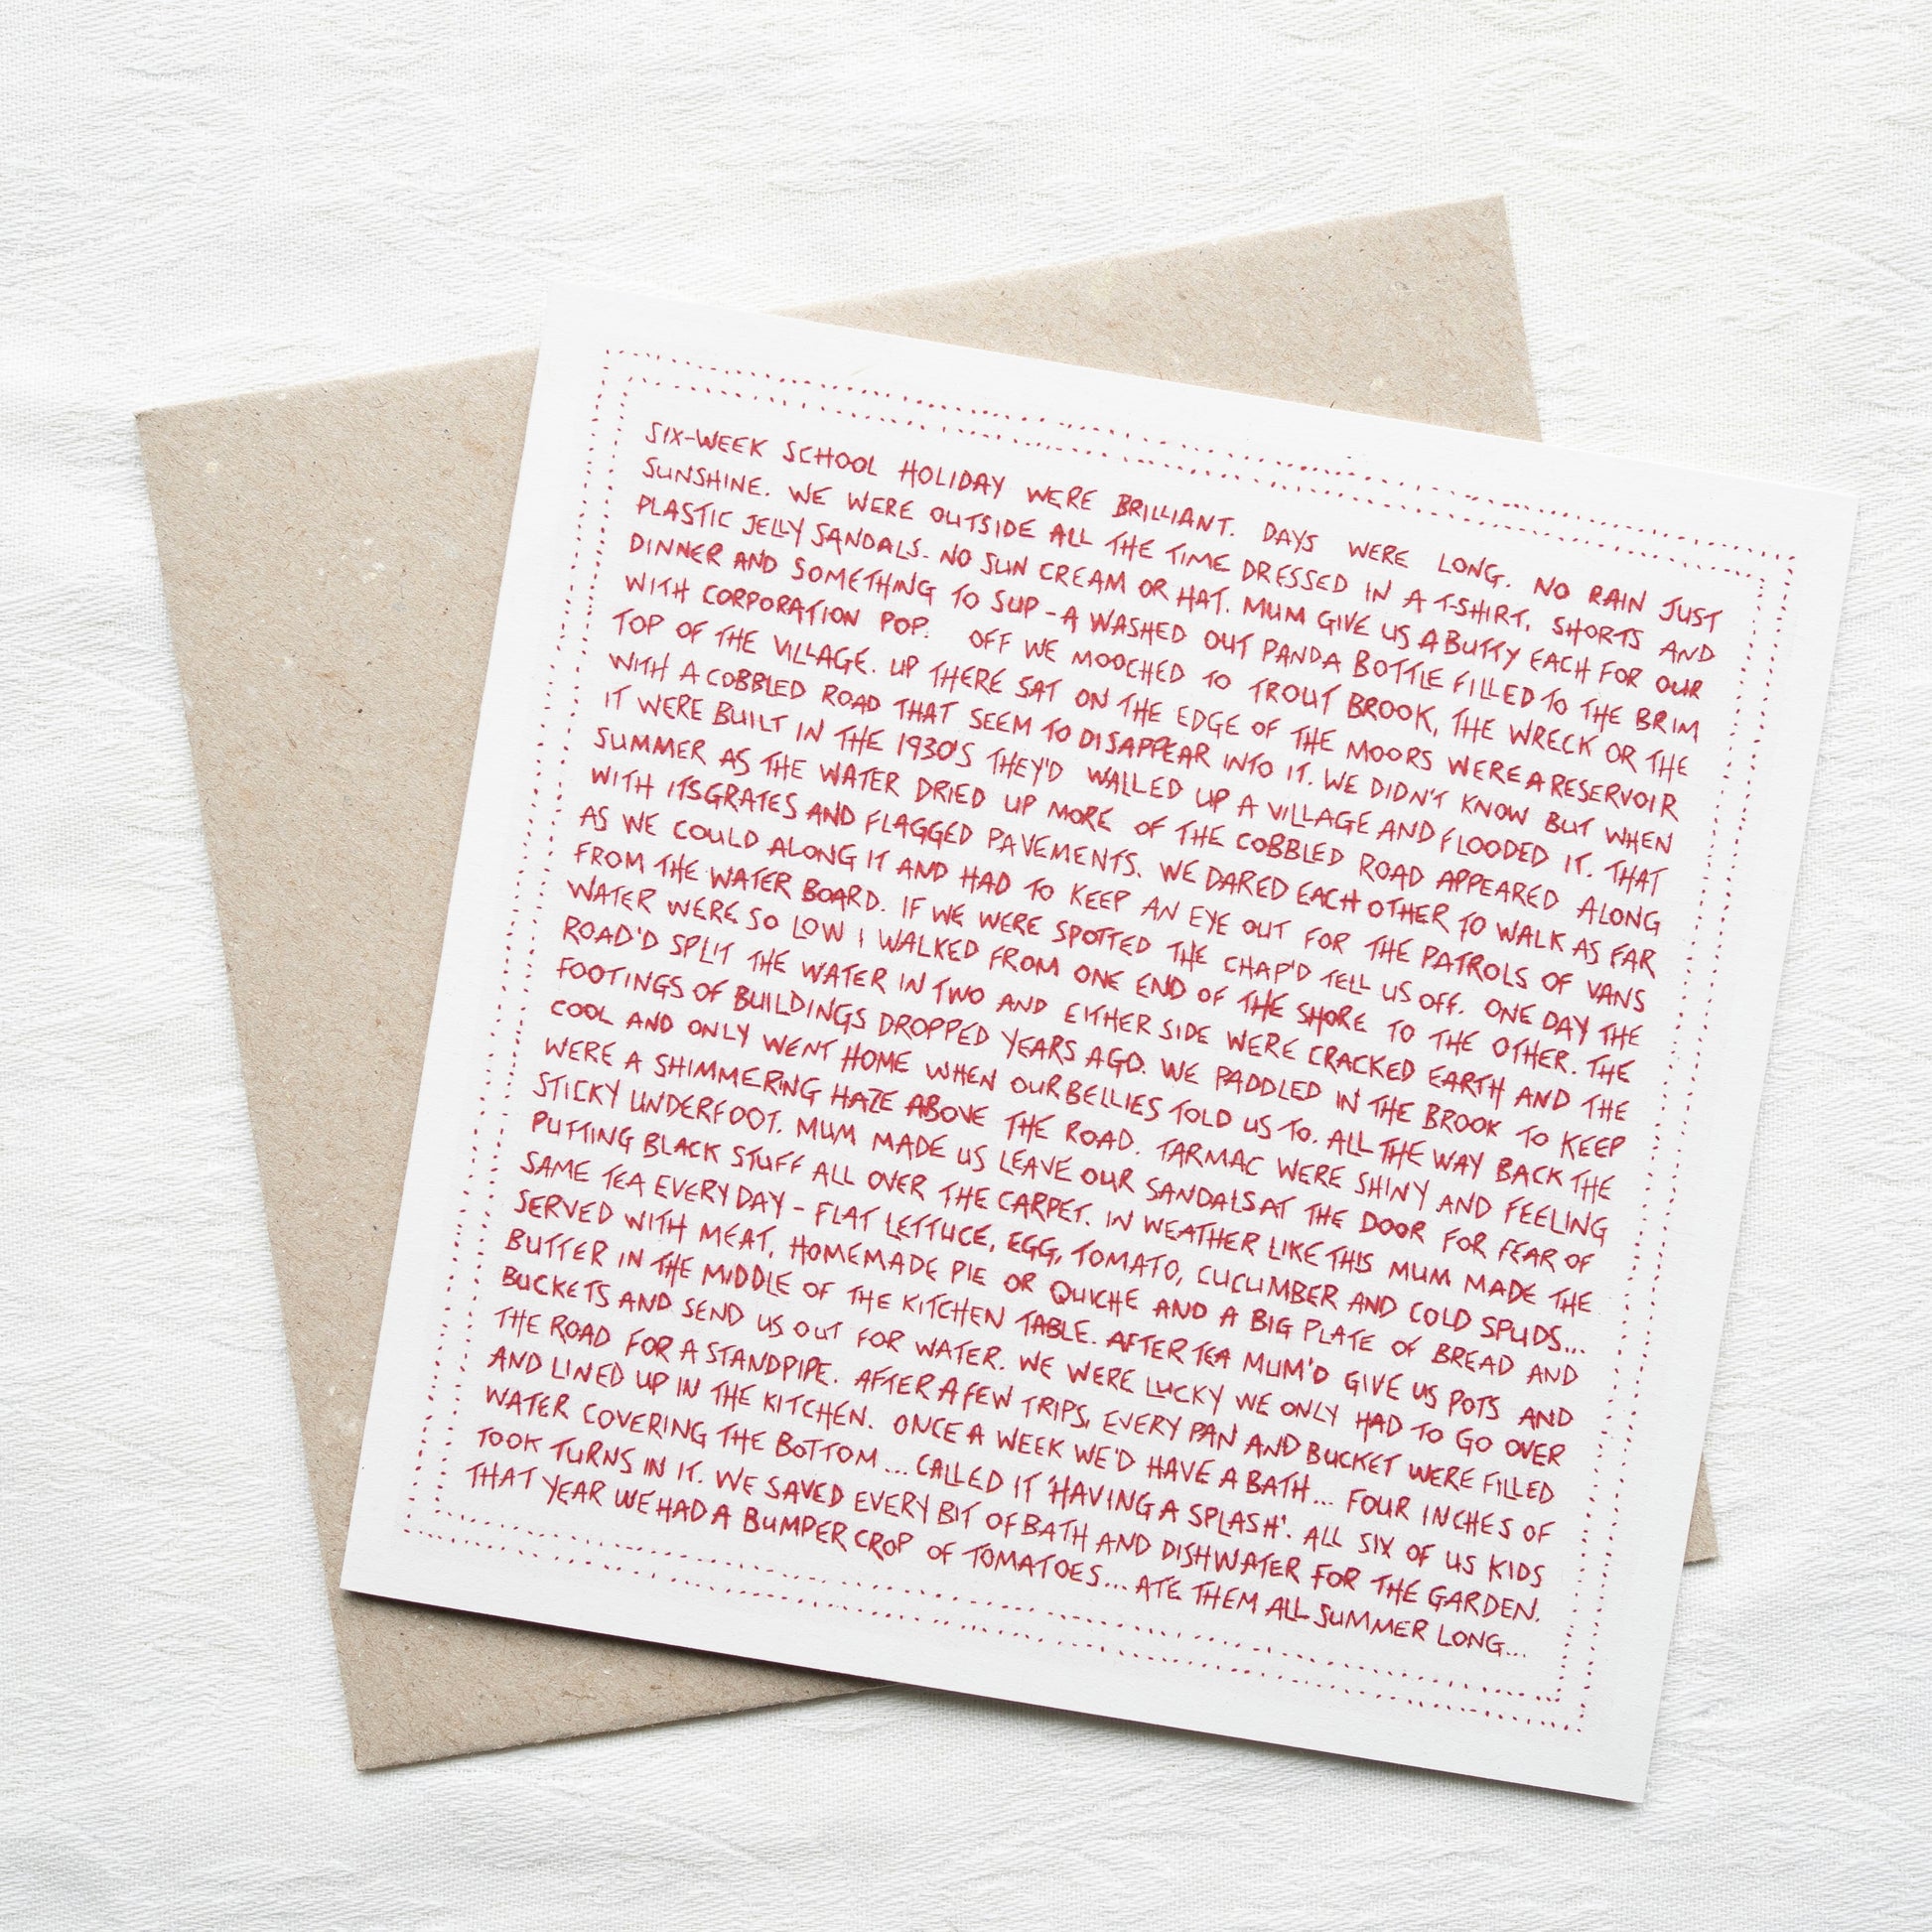 SIX-WEEK SCHOOL HOLIDAY WERE BRILLIANT. DAYS WERE LONG. NO RAIN JUST
SUNSHINE. WE WERE OUTSIDE ALL THE TIME DRESSED IN A T-SHIRT, SHORTS AND
PLASTIC JELLY SANDALS. NO SUN CREAM OR HAT. MUM GIVE US A BUTTY EACH FOR OUR
DINNER AND SOMETHING TO SUP - A WASHED OUT PANDA BOTTLE FILLED TO THE BRIM
WITH CORPORATION POP. OFF WE MOOCHED TO TROUT BROOK, THE WRECK OR THE
TOP OF THE VILLAGE. UP THERE SAT ON THE EDGE OF THE MOORS WERE A RESERVOIR
WITH A COBBLED ROAD THAT SEEM TO DISAPPEAR INTO IT. WE DIDN'T KNOW BUT WHEN
IT WERE BUILT IN THE 1930'S THEY'D WALLED UP A VILLAGE AND FLOODED IT. THAT
SUMMER AS THE WATER DRIED UP MORE OF THE COBBLED ROAD APPEARED ALONG
WITH ITS GRATES AND FLAGGED PAVEMENTS. WE DARED EACH OTHER TO WALK AS FAR
AS WE COULD ALONG IT AND HAD TO KEEP AN EYE OUT FOR THE PATROLS OF VANS
FROM THE WATER BOARD. IF WE WERE SPOTTED THE CHAP'D TELL US OFF. ONE DAY THE
WATER WERE SO LOW I WALKED FROM ONE END OF THE SHORE TO THE OTHER. THE
ROAD'D SPLIT THE WATER IN TWO AND EITHER SIDE WERE CRACKED EARTH AND THE
FOOTINGS OF BUILDINGS DROPPED YEARS AGO. WE PADDLED IN THE BROOK TO KEEP
COOL AND ONLY WENT HOME WHEN OUR BELLIES TOLD US TO. ALL THE WAY BACK THE
WERE A SHIMMERING HAZE ABOVE THE ROAD. TARMAC WERE SHINY AND FEELING
STICKY UNDERFOOT. MUM MADE US LEAVE OUR SANDALS AT THE DOOR FOR FEAR OF
PUTTING BLACK STUFF ALL OVER THE CARPET. IN WEATHER LIKE THIS MUM MADE THE
SAME TEA EVERY DAY - FLAT LETTUCE, EGG, TOMATO, CUCUMBER AND COLD SPUDS...
SERVED WITH MEAT, HOMEMADE PIE OR QUICHE AND A BIG PLATE OF BREAD AND
BUTTER IN THE MIDDLE OF THE KITCHEN TABLE. AFTER TEA MUM'D GIVE US POTS AND
BUCKETS AND SEND US OUT FOR WATER. WE WERE LUCKY WE ONLY HAD TO GO OVER
THE ROAD FOR A STANDPIPE. AFTER A FEW TRIPS, EVERY PAN AND BUCKET WERE FILLED
AND LINED UP IN THE KITCHEN. ONCE A WEEK WE'D HAVE A BATH... FOUR INCHES OF
WATER COVERING THE BOTTOM... CALLED IT 'HAVING A SPLASH'. ALL SIX OF US KIDS
TOOK TURNS IN IT. WE SAVED EVERY BIT OF BATH AND DISHWATER FOR THE GARDEN.
THAT YEAR WE HAD A BUMPER CROP OF TOMATOES... ATE THEM ALL SUMMER LONG...